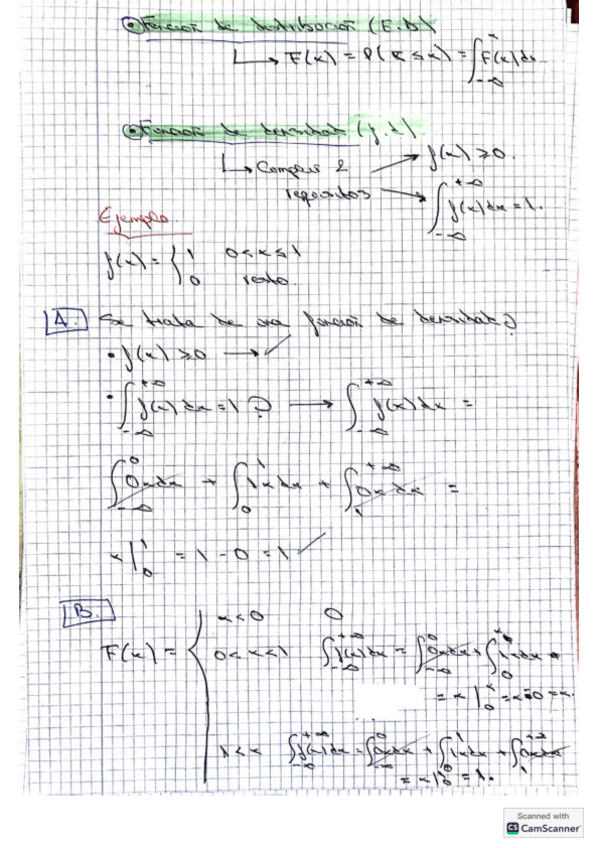 • Función de distribución (F.D)
↳ F(x) = P(X ≤ x) = ∫_{-∞}^{x} F(x) dx
• Función de densidad (f.d).
↳ Cumplir 2 requisitos → f(x) ≥ 0.
→ ∫_{-∞}^{+∞} f(x) dx = 1.
Ejemplo.
f(x) = { 1 0<x≤1
0 resto.
A. Se trata de una función de densidad?
• f(x) ≥ 0 → ✓
• ∫_{-∞}^{+∞} f(x) dx = 1 ? → ∫_{-∞}^{+∞} f(x) dx =
∫_{-∞}^{0} 0x dx + ∫_{0}^{1} 1x dx + ∫_{1}^{+∞} 0x dx =
x|_{0}^{1} = 1 - 0 = 1 ✓
B.
F(x) = { x<0 0
0<x<1 ∫_{-∞}^{+∞} f(x) dx = ∫_{-∞}^{0} 0x dx + ∫_{0}^{x} 1x dx =
= x|_{0}^{x} = x - 0 = x.
1<x ∫_{-∞}^{+∞} f(x) dx = ∫_{-∞}^{0} 0x dx + ∫_{0}^{1} 1x dx + ∫_{1}^{+∞} 0x dx
= x|_{0}^{1} = 1.
Scanned with
CS CamScanner